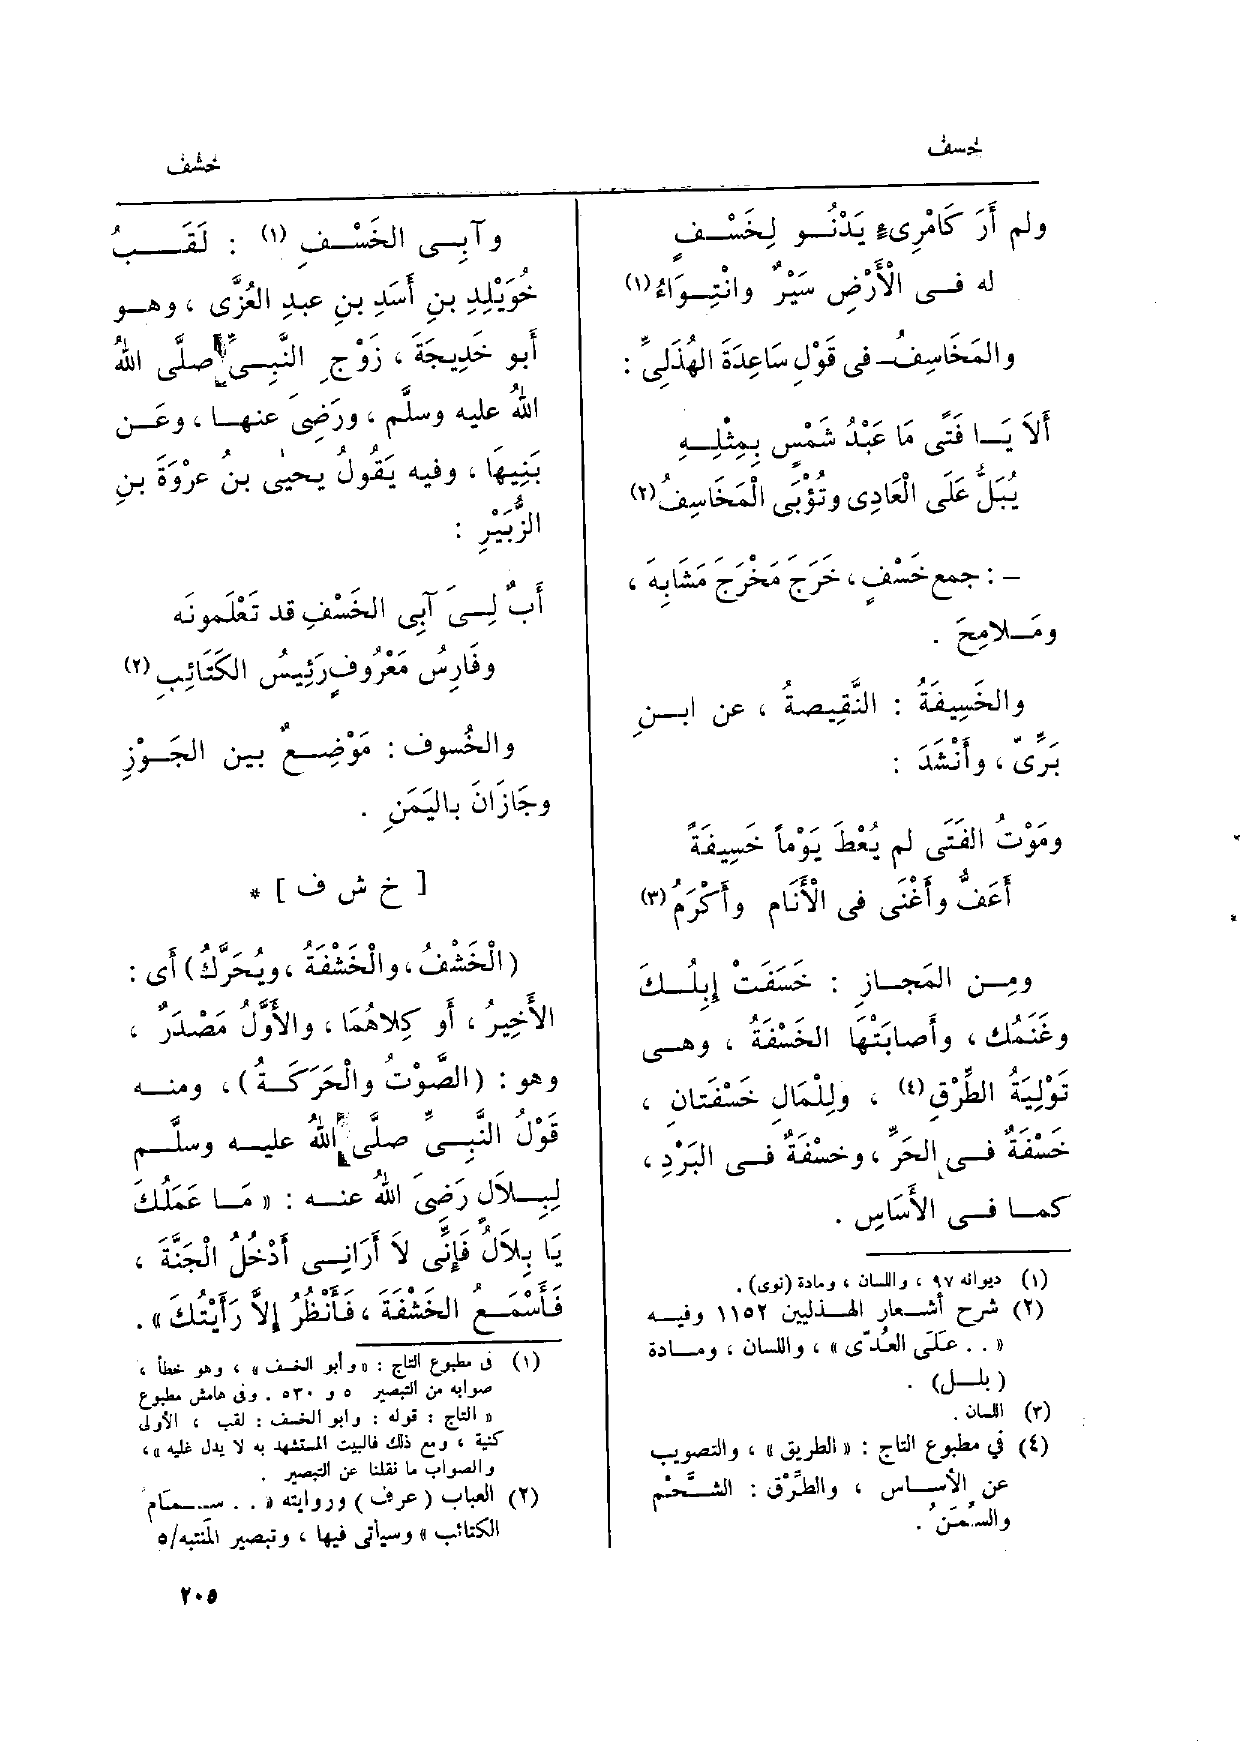 خسف
خشف
ولم أَرَ كَامْرِىءٍ يَدْنُــو لِخَسْــفٍ
له فــى الْأَرْضِ سَيْرٌ وانْتِــوَاءُ(١)
والمَخَاسِفُ فى قَوْلِ سَاعِدَةَ الهُذَلِىِّ :
أَلاَ يَــا فَتًى مَا عَبْدُ شَمْسٍ بِمِثْلِــهِ
يُبَلُّ عَلَى الْعَادِى وتُؤْبَى الْمَخَاسِفُ(٢)
– : جمع خَسْفٍ ، خَرَجَ مَخْرَجَ مَشَابِهَ ،
ومَــلامِحَ .
والخَسِيفَةُ : النَّقِيصةُ ، عن ابــنِ
بَرِّىّ ، وأَنْشَدَ :
ومَوْتُ الفَتَى لم يُعْطَ يَوْماً خَسِيفَةً
أَعَفُّ وأَغْنَى فى الْأَنَامِ وأَكْرَمُ(٣)
ومِــن المَجــازِ : خَسَفَتْ إِبِلُــكَ
وغَنَمُك ، وأَصابَتْها الخَسْفَةُ ، وهــى
تَوْلِيَةُ الطِّرْقِ(٤) ، ولِلْمَالِ خَسْفَتانِ ،
خَسْفَةٌ فــى الحَرِّ ، وخسْفَةٌ فــى البَرْدِ ،
كمــا فــى الأَسَاسِ .
(١) ديوانه ٩٧ ، واللسان ، ومادة (نوى) .
(٢) شرح أشــعار الهــذليين ١١٥٢ وفيــه
« . . عَلَى العُدِّى » ، واللسان ، ومــادة
(بلــل) .
(٣) اللسان .
(٤) في مطبوع التاج : « الطريق » ، والتصويب
عن الأســاس ، والطِّرْق : الشــحْم
والسِّمَنُ .
وآبــى الخَسْــفِ (١) : لَقَــبُ
خُوَيْلِدِ بنِ أَسَدِ بنِ عبدِ العُزَّى ، وهــو
أبو خَدِيجَةَ ، زَوْجِ النَّبِــىِّ صلَّى اللهُ
اللهُ عليه وسلَّم ، ورَضِىَ عنهــا ، وعَــن
بَنِيهَا ، وفيه يَقُولُ يحيى بنُ عرْوَةَ بنِ
الزُّبَيْرِ :
أَبٌ لِــىَ آبِى الخَسْفِ قد تَعْلَمونَه
وفَارِسُ مَعْرُوفٍ رَئِيسُ الكَتَائِبِ (٢)
والخُسوف : مَوْضِــعٌ بين الجَــوْزِ
وجَازَانَ باليَمَنِ .
[ خ ش ف ] *
(الْخَشْفُ ، والْخَشْفَةُ ، ويُحَرَّكُ) أى :
الأَخِيرُ ، أو كِلاهُمَا ، والأَوَّلُ مَصْدَرٌ ،
وهو : (الصَّوْتُ والْحَرَكَــةُ) ، ومنــه
قَوْلُ النَّبِــىِّ صلَّى اللهُ عليــه وسلَّــم
لِبِــلاَلٍ رَضِىَ اللهُ عنــه : « مَــا عَمَلُكَ
يَا بِلاَلُ فَإِنِّى لاَ أَرَانِــى أَدْخُلُ الْجَنَّةَ ،
فَأَسْمَــعُ الخَشْفَةَ ، فَأَنْظُرُ إِلاَّ رَأَيْتُكَ » .
(١) فى مطبوع التاج : «وأبو الخسف » ، وهو خطأ ،
صوابه من التبصير ٥ و ٥٣٠ . وفى هامش مطبوع
« التاج : قوله : وابو الخسف : لقب ، الأولى
كنية ، ومع ذلك فالبيت المستشهد به لا يدل عليه » ،
والصواب ما نقلنا عن التبصير .
(٢) العباب ( عرف ) وروايته « . . ســمام
الكتائب » وسيأتى فيها ، وتبصير المنتبه/٥
٢٠٥